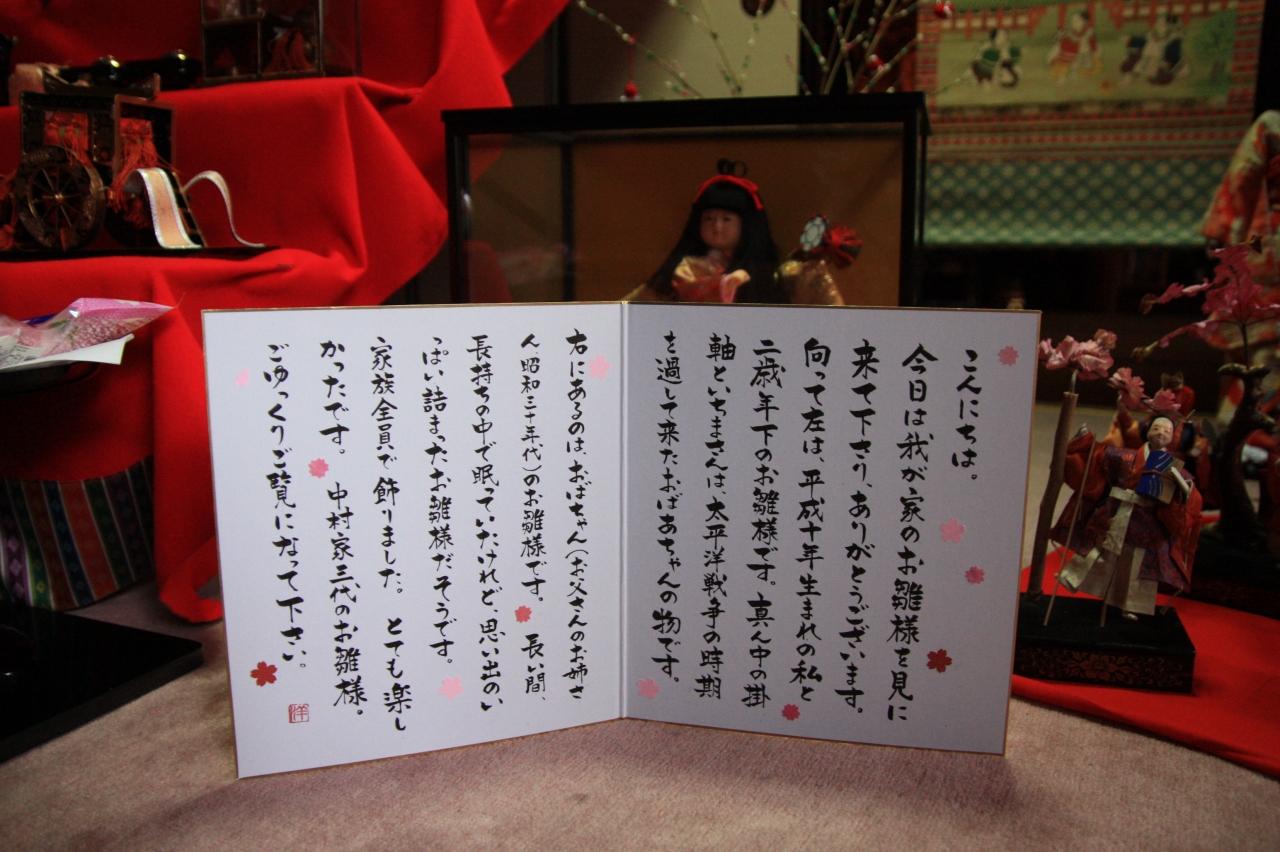 こんにちは。
今日は我が家のお雛様を見に
来て下さり、ありがとうございます。
向って左は、平成十年生まれの私と
二歳年下のお雛様です。真ん中の掛
軸といちまさんは、太平洋戦争の時期
を過して来たおばあちゃんの物です。
右にあるのは、おばちゃん(お父さんのお姉さ
ん、昭和三十年代)のお雛様です。長い間、
長持ちの中で眠っていたけれど、思い出のい
っぱい詰まったお雛様だそうです。
家族全員で飾りました。とても楽し
かったです。中村家三代のお雛様。
ごゆっくりご覧になって下さい。
洋